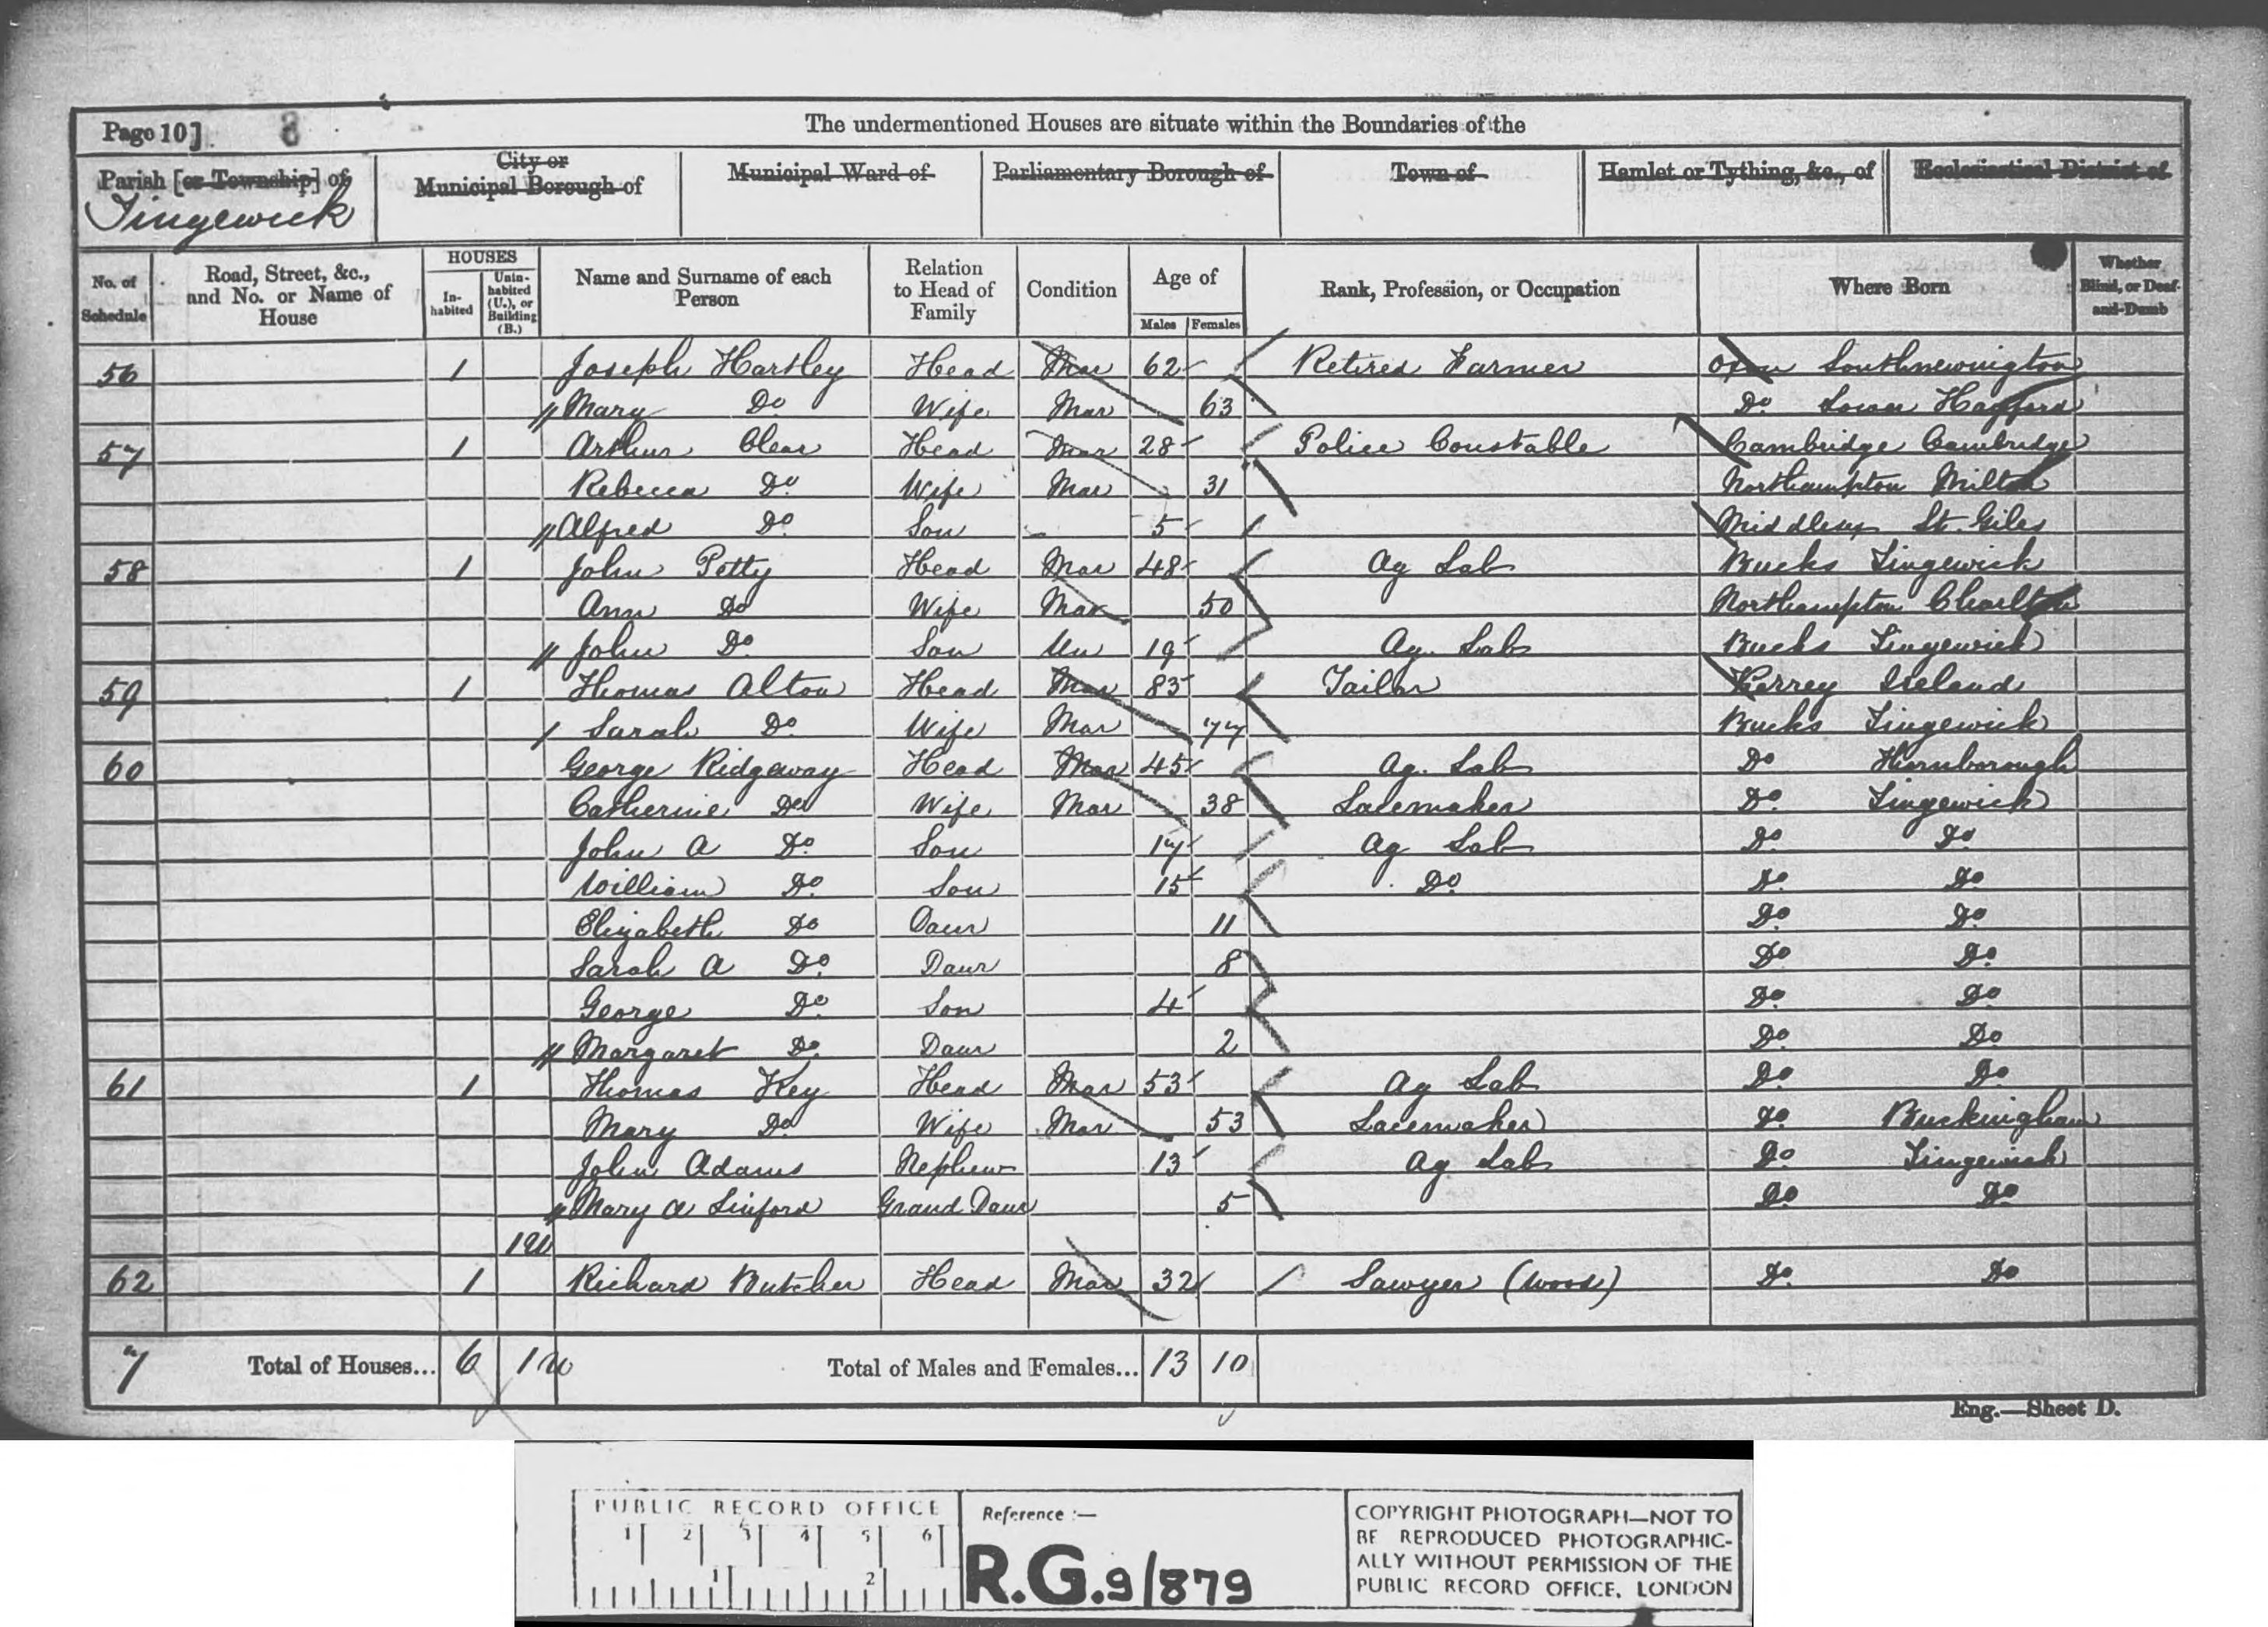 Page 10] 8 The undermentioned Houses are situate within the Boundaries of the
Parish [or Township] of City or Municipal Borough of Municipal Ward of Parliamentary Borough of Town of Hamlet or Tything, &c., of Ecclesiastical District of
Tingewick
No. of Schedule Road, Street, &c., and No. or Name of House HOUSES Inhabited Uninhabited (U.), or Building (B.) Name and Surname of each Person Relation to Head of Family Condition Age of Males Females Rank, Profession, or Occupation Where Born Whether Blind, or Deaf-and-Dumb
56 1 Joseph Hartley Head Mar 62 Retired Farmer Oxon Southnewington
// Mary Do Wife Mar 63 Do Lower
57 1 Arthur Clear Head Mar 28 Police Constable Cambridge Cambridge
Rebecca Do Wife Mar 31 Northampton Milton
// Alfred Do Son 5 Middlesex St. Giles
58 1 John Petty Head Mar 48 Ag Lab Bucks Tingewick
Ann Do Wife Mar 50 Northampton Charlton
// John Do Son Un 19 Ag. Lab Bucks Tingewick
59 1 Thomas Alton Head Mar 83 Tailor Kerrey Ireland
/ Sarah Do Wife Mar 77 Bucks Tingewick
60 George Ridgeway Head Mar 45 Ag. Lab Do Thornborough
Catherine Do Wife Mar 38 Lacemaker Do Tingewick
John A Do Son 17 Ag Lab Do Do
William Do Son 15 Do Do Do
Elizabeth Do Daur 11 Do Do
Sarah A Do Daur 8 Do Do
George Do Son 4 Do Do
// Margaret Do Daur 2 Do Do
61 1 Thomas Key Head Mar 53 Ag Lab Do Do
Mary Do Wife Mar 53 Lacemaker Do Buckingham
John Adams Nephew 13 Ag Lab Do Tingewick
// Mary A Linford Grand Daur 5 Do Do
1U
62 1 Richard Butcher Head Mar 32 Sawyer (Wood) Do Do
7 Total of Houses... 6 1U Total of Males and Females... 13 10
Eng.—Sheet D.
PUBLIC RECORD OFFICE
1 2 3 4 5 6
1 2
Reference :—
R.G.9/879
COPYRIGHT PHOTOGRAPH—NOT TO
BE REPRODUCED PHOTOGRAPHIC-
ALLY WITHOUT PERMISSION OF THE
PUBLIC RECORD OFFICE, LONDON